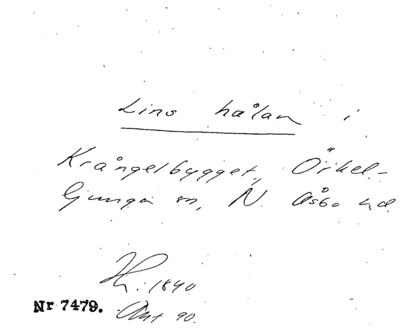 Lins hålan i
Krångelbygget, Örkel-
ljunga sn, N. Åsbo hd.
1840
Nr 7479.
90.